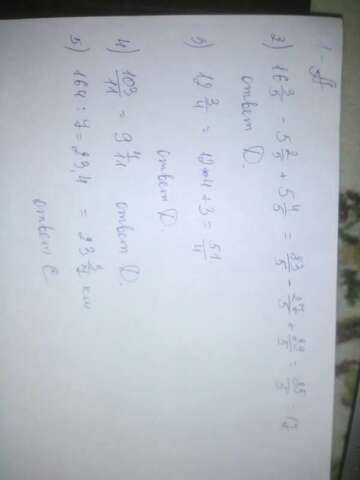 1-A
2) 16 3/5 - 5 2/5 + 5 4/5 = 83/5 - 27/5 + 29/5 = 85/5 = 17
ответ D.
3) 12 3/4 = 12*4+3 = 51/4
ответ D.
4) 103/11 = 9 4/11 ответ D.
5) 164 : 7 = 23,4 = 23 3/7 км
ответ C